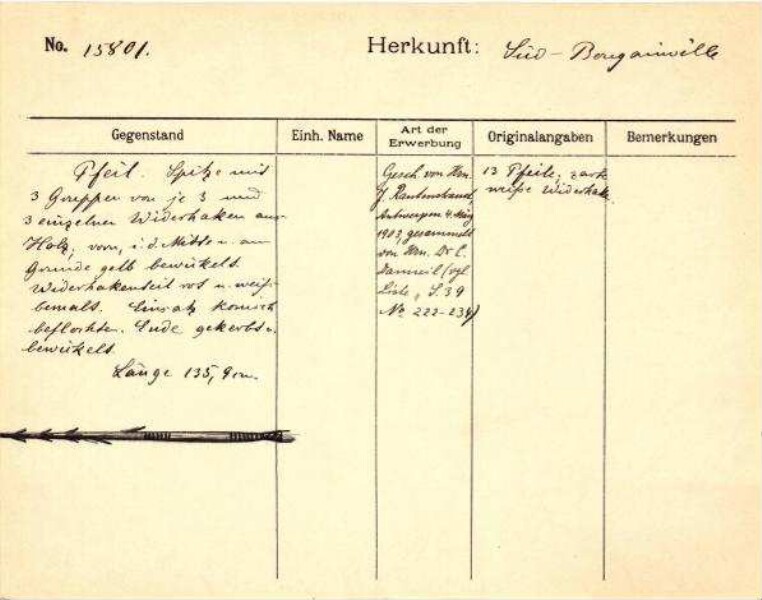 No. 15801.
Herkunft: Süd-Bougainville
Gegenstand
Einh. Name
Art der Erwerbung
Originalangaben
Bemerkungen
Pfeil. Spitze mit
3 Gruppen von je 3 und
3 einzelnen Widerhaken aus
Holz, vorn, i. d. Mitte u. am
Grunde gelb bewickelt.
Widerhakenteil rot u. weiß
bemalt. Einsatz konisch
beflochten. Ende gekerbt u.
bewickelt.
Länge 135,9 cm.
Gesch. von Hrn.
J. Rautenstrauch,
Antwerpen 4. März
1903, gesammelt
von Hrn. Dr C.
Danneil (vgl.
Liste, S. 39
No 222-234)
13 Pfeile,
weiße Widerhak.